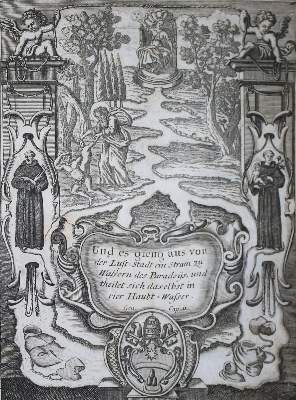 Und es gieng aus von
der Lust-Stadt ein Strom zu
Wässern des Paradeis, und
theilet sich daselbst in
vier Haubt-Wasser.
Gen. Cap. 2.